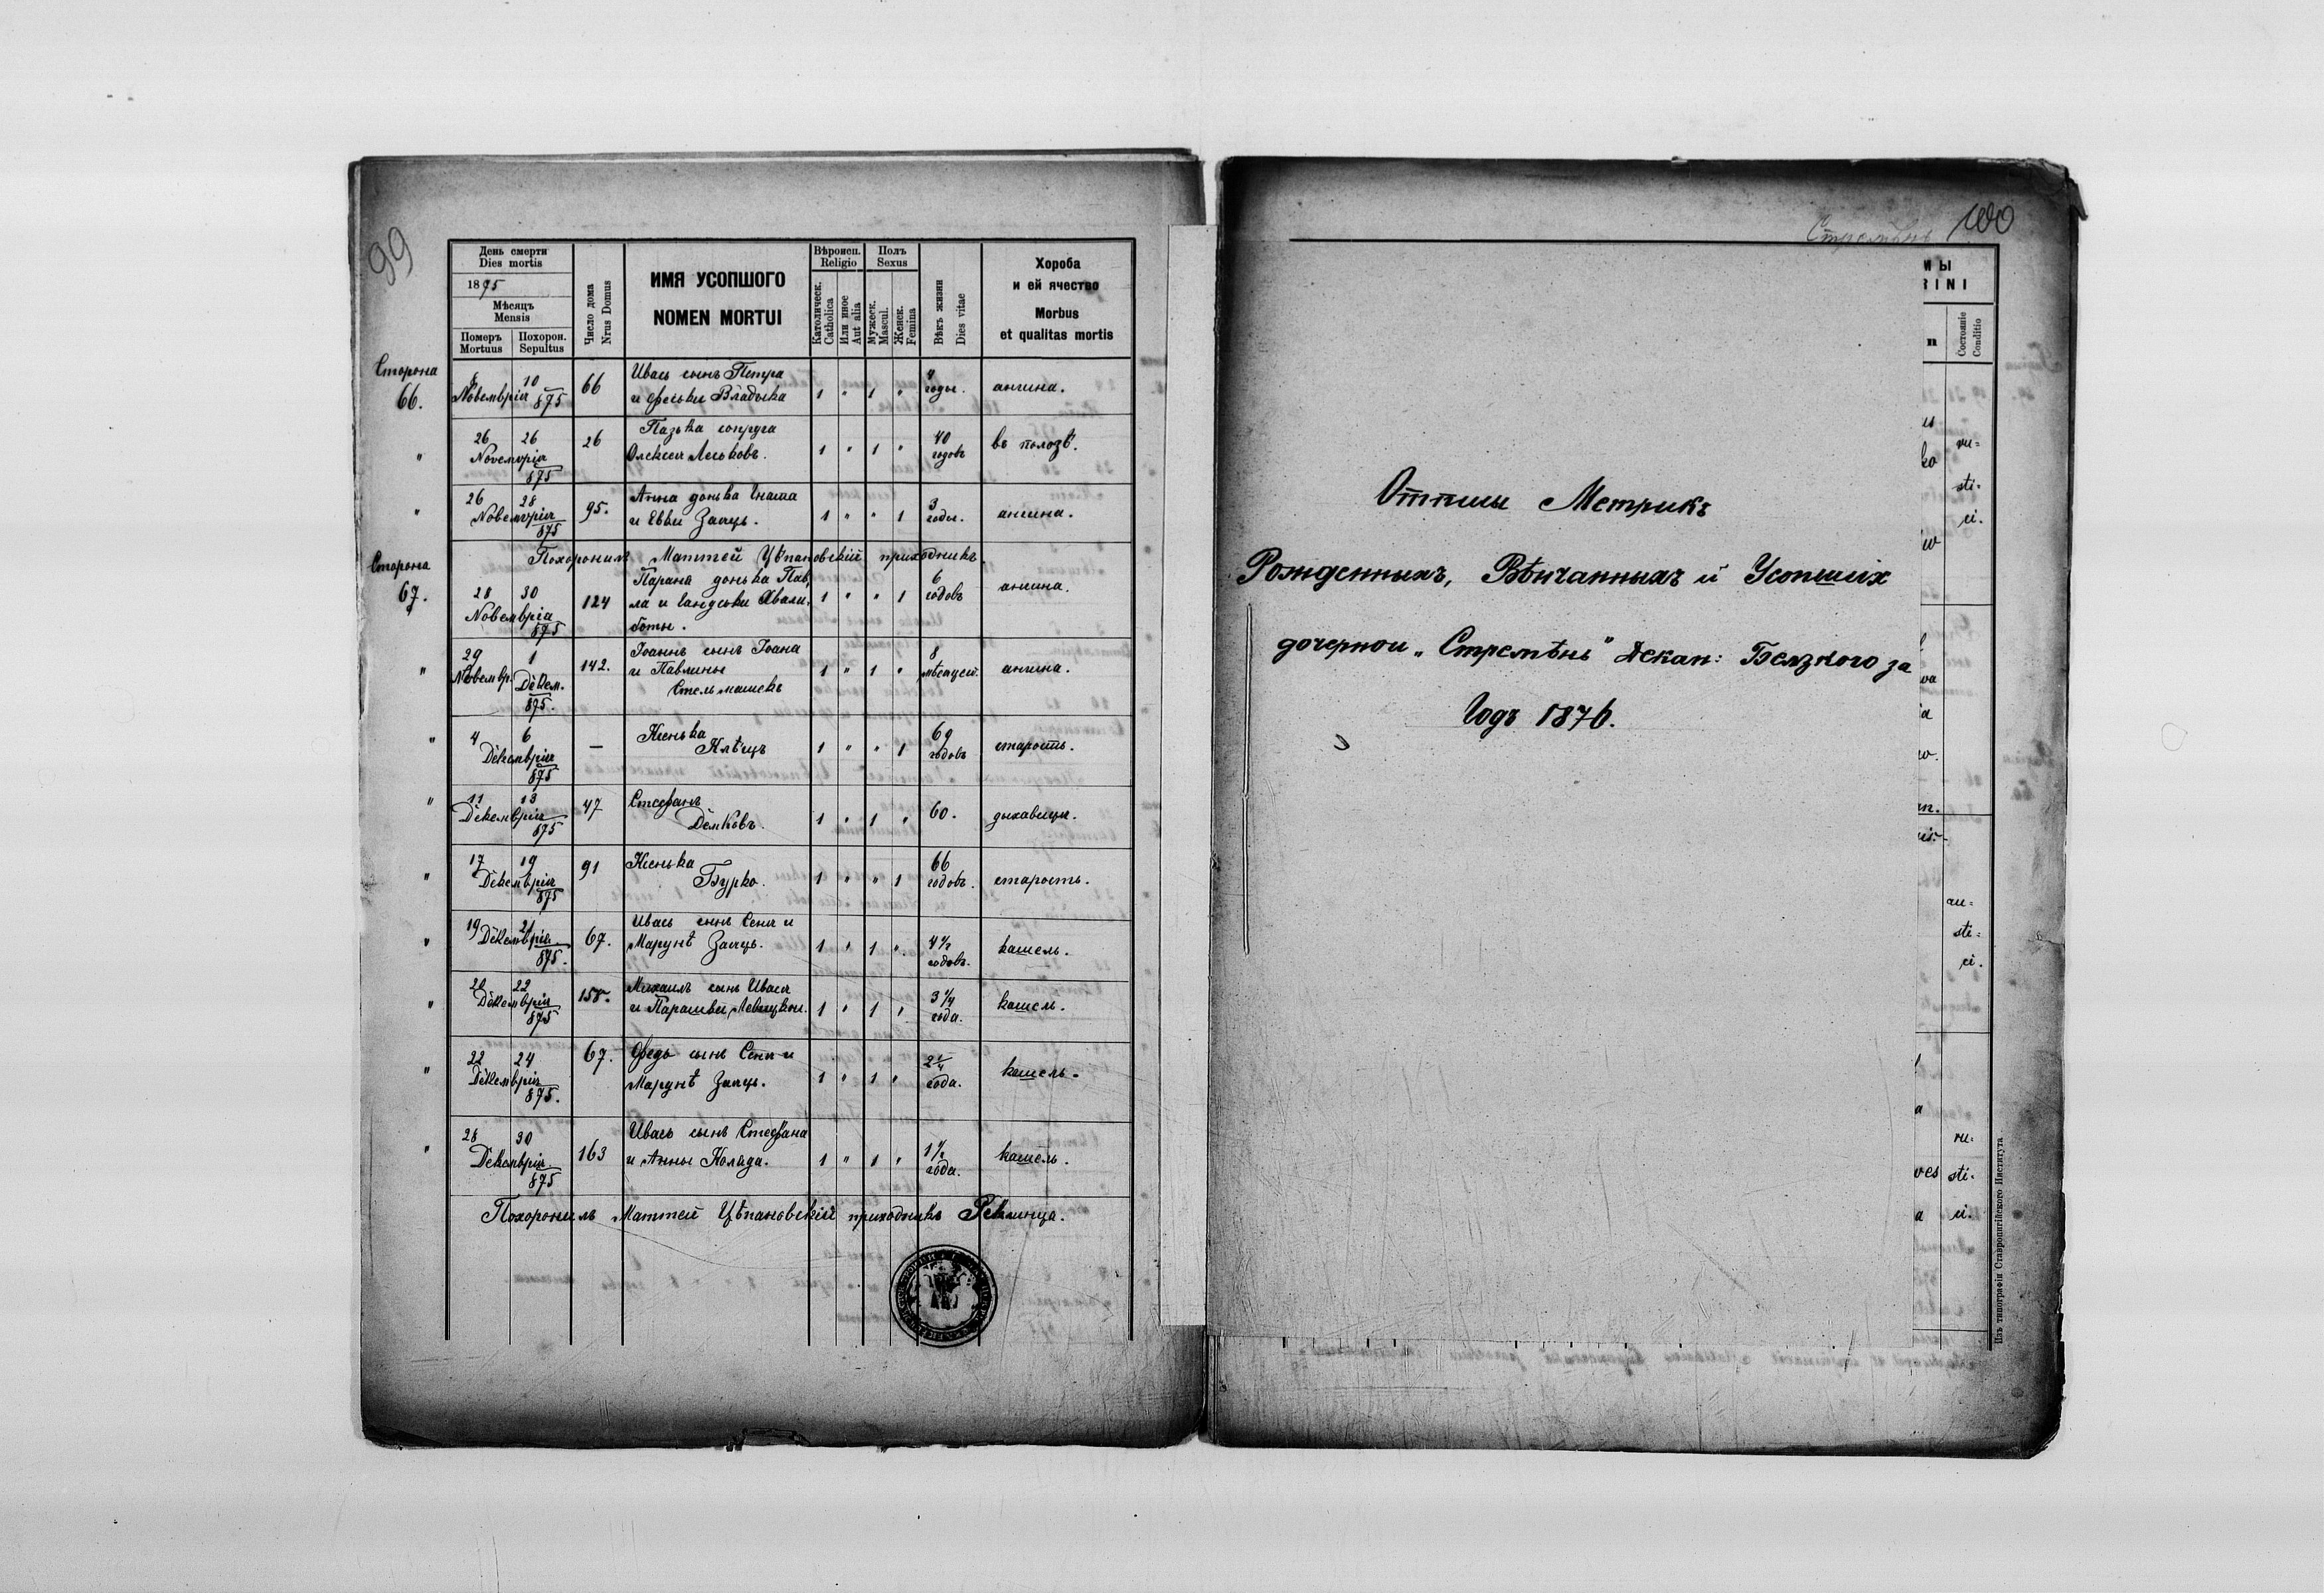 99
День смерти
Dies mortis
1875
Мѣсяць
Mensis
Померъ
Mortuus
Похорон.
Sepultus
Число дома
Nrus Domus
ИМЯ УСОПШОГО
NOMEN MORTUI
Вѣроисп.
Religio
Католическ.
Catholica
Или иное
Aut alia
Полъ
Sexus
Мужеск.
Mascul.
Женск.
Femina
Вѣкъ жизни
Dies vitae
Хороба
и ей ячество
Morbus
et qualitas mortis
Сторона
66.
10
Новемврія 875
66
Ивась сынъ Петра
и Феськи Владыка
1 " 1 "
4
годы.
ангина.
"
26 26
Новемврія
875
26
Пазька супруга
Олексея Леськовъ.
1 " 1 "
40
годовъ
въ полозѣ.
"
26 28
Новемврія
875
95.
Анна донька Гната
и Евки Заяць.
1 " " 1
3
годы.
ангина.
Похоронилъ Маттей Цѣпановскій приходникъ
Сторона
67.
28 30
Новемврія
875
124
Параня донька Пав,
ла и Гандзьки Хвали,
боты.
1 " " 1
6
годовъ
ангина.
"
29 1
Новемвр. Декем.
875.
142.
Іоаннъ сынъ Іоана
и Павлины
Стельмашекъ
1 " 1 "
8
мѣсяцей.
ангина.
"
4 6
Декемврія
875
—
Ксенька
Клѣцъ
1 " " 1
69
годовъ
старость.
"
11 13
Декемврія
875
47
Стефанъ
Демковъ.
1 " 1 "
60.
дыхавиця.
"
17 19
Декемврія
875
91
Ксенька
Бурко.
1 " " 1
66
годовъ.
старость.
"
19 21
Декемврія
875.
67.
Ивась сынъ Сеня и
Марунѣ Заяць.
1 " 1 "
4 1/2
годовъ.
кашель.
"
20 22
Декемврія
875
158.
Михаилъ сынъ Ивася
и Парашьки Левицкои.
1 " 1 "
3 1/4
года.
кашель.
"
22 24
Декемврія
875.
67.
Федь сынъ Сеня и
Марунѣ Заяць.
1 " 1 "
2 1/4
года.
кашель.
"
28 30
Декемврія
875
163
Ивась сынъ Стефана
и Анны Коляда.
1 " 1 "
1 1/2
года.
кашель.
Похоронилъ Маттей Цѣпановскій приходникъ Реклинца.
Стремѣнь 100
Отписы Метрикъ
Рожденныхъ, Вѣнчанныхъ и Усопшихъ
дочернои „Стремѣнь" Декан: Белзкого за
Годъ 1876.
МЫ
RINI
n
Состояніе
Conditio
ru=
sti=
ci.
ru=
sti=
ci.
ves
ru-
sti-
ci.
Изъ типографіи Ставропигійского Института